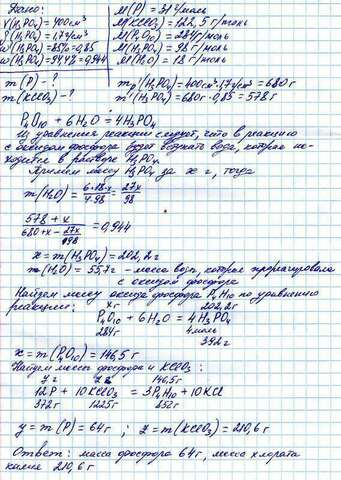 Дано:
V(H₃PO₄)=400см³
ρ(H₃PO₄)=1,7г/см³
ω(H₃PO₄)=85%=0,85
ω(H₃PO₄)=94,4%=0,944
m(P)-?
m(KClO₃)-?
M(P)=31г/моль
M(KClO₃)=122,5г/моль
M(P₄O₁₀)=284г/моль
M(H₃PO₄)=98г/моль
M(H₂O)=18г/моль
mр(H₃PO₄)=400см³·1,7г/см³=680г
m(H₃PO₄)=680г·0,85=578г
P₄O₁₀ + 6H₂O = 4H₃PO₄
Из уравнения реакции следует, что в реакцию
с оксидом фосфора будет вступать вода, которая на-
ходится в растворе H₃PO₄.
Примем массу H₃PO₄ за x г, тогда
m(H₂O)= 6·18·x / 4·98 = 27x / 98
578+x / 680+x-27x/98 =0,944
x=m(H₃PO₄)=202,2г
m(H₂O)=55,7г - масса воды, которая прореагировала
с оксидом фосфора
Найдем массу оксида фосфора P₄H₁₀ по уравнению
реакции: xг 202,2г
P₄O₁₀ + 6H₂O = 4H₃PO₄
284г 4моль
392г
x=m(P₄O₁₀)=146,5г
Найдем массы фосфора и KClO₃:
y г z г 146,5г
12P + 10KClO₃ = 3P₄H₁₀ + 10KCl
372г 1225г 852г
y=m(P)=64г ; z=m(KClO₃)=210,6г
Ответ: масса фосфора 64г, масса хлората
калия 210,6г